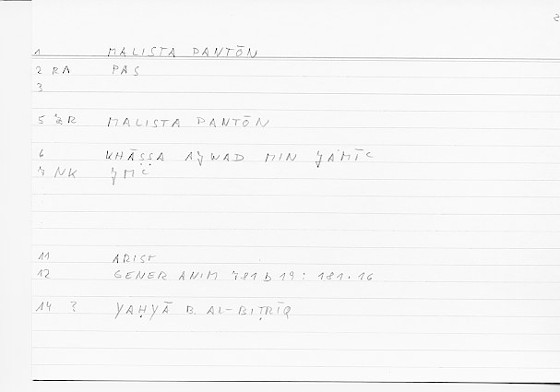 1 MALISTA PANTŌN
2 RA PAS
3
5 GR MALISTA PANTŌN
6 KHĀṢṢA AǦWAD MIN ǦAMĪʿ
7 NK ǦMʿ
11 ARIST
12 GENER ANIM 781 B 19 : 181.16
14 ? YAḤYĀ B. AL-BIṬRĪQ